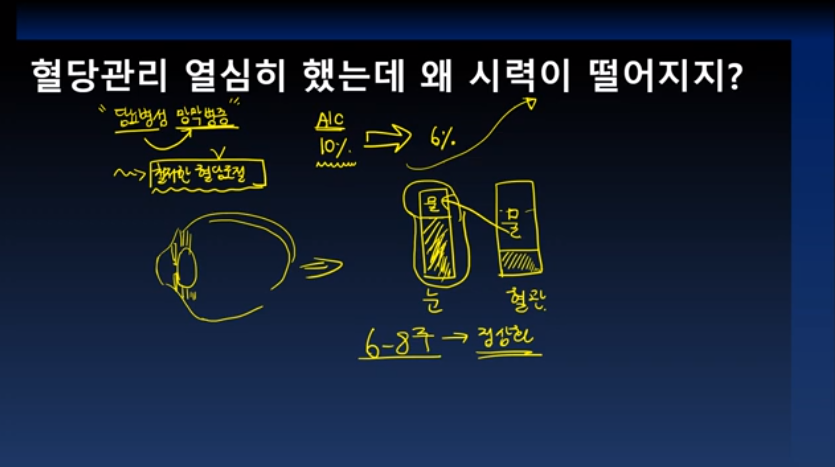 혈당관리 열심히 했는데 왜 시력이 떨어지지?
"당뇨병성 망막병증"
철저한 혈당조절
A1C
10%
6%
물
물
눈
혈관
6-8주 → 정상화